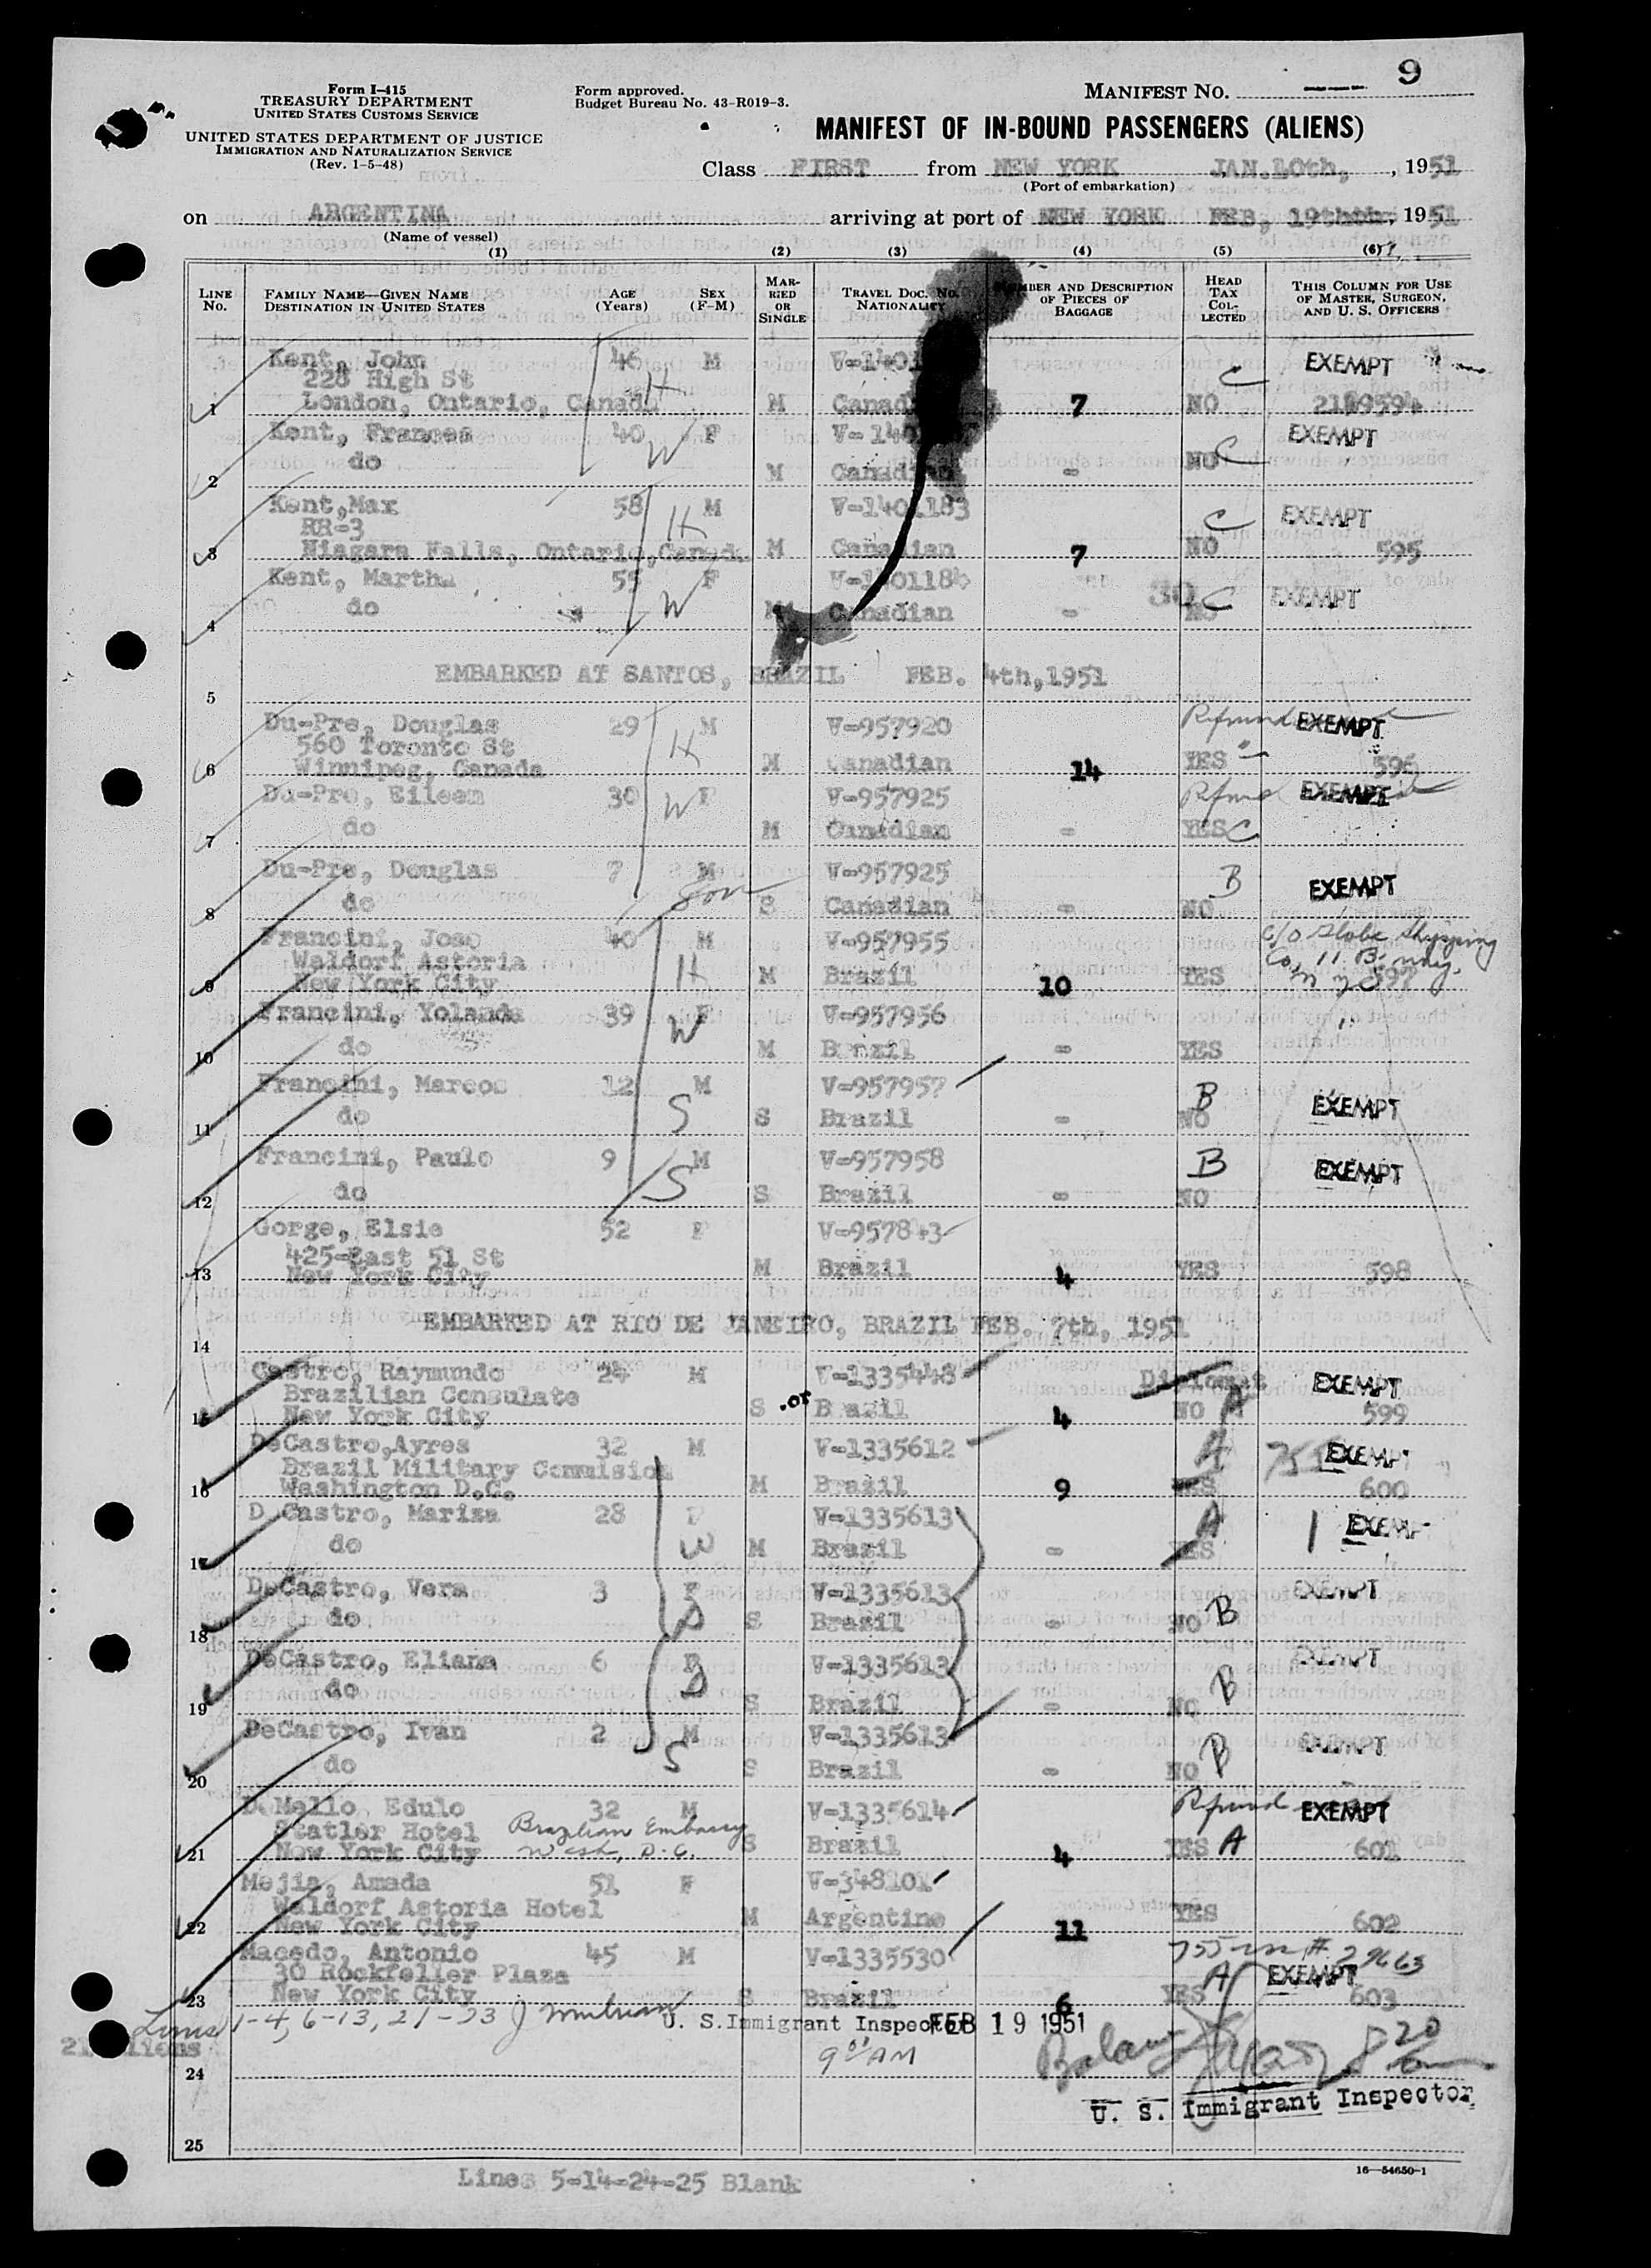 9
Form I-415
TREASURY DEPARTMENT
UNITED STATES CUSTOMS SERVICE
UNITED STATES DEPARTMENT OF JUSTICE
IMMIGRATION AND NATURALIZATION SERVICE
(Rev. 1-5-48)
Form approved.
Budget Bureau No. 43-R019-3.
MANIFEST NO.
MANIFEST OF IN-BOUND PASSENGERS (ALIENS)
Class FIRST from NEW YORK JAN.10th, , 1951
(Port of embarkation)
on ARGENTINA arriving at port of NEW YORK FEB, 19th, 1951
(Name of vessel)
(1) (2) (3) (4) (5) (6)
LINE No. FAMILY NAME—GIVEN NAME DESTINATION IN UNITED STATES AGE (Years) SEX (F-M) MARRIED OR SINGLE TRAVEL DOC. No. NATIONALITY NUMBER AND DESCRIPTION OF PIECES OF BAGGAGE HEAD TAX COLLECTED THIS COLUMN FOR USE OF MASTER, SURGEON, AND U. S. OFFICERS
Kent, John 46 M EXEMPT
228 High St H C
1 London, Ontario, Canada M 7 NO
Kent, Frances 40 F EXEMPT
2 do W M Canadian - NO C
Kent,Max 58 M V-1401183 EXEMPT
RR-3 H C
3 Niagara Falls, Ontario,Canada M Canadian 7 NO 595
Kent, Martha 55 F V-1401184
4 do W M Canadian - 30 NO C EXEMPT
5 EMBARKED AT SANTOS, BRAZIL FEB. 4th,1951
Du-Pre, Douglas 29 M V-957920 Refund EXEMPT
560 Toronto St H
6 Winnipeg, Canada M Canadian 14 YES 596
Du-Pre, Eileen 30 W F V-957925 Refund EXEMPT
7 do M Canadian - YES C
Du-Pre, Douglas 7 M V-957925 B EXEMPT
8 do Son S Canadian - NO
Francini, Jose 40 M V-957955 c/o Globe Shipping
Waldorf Astoria H Co, 11 B. way.
9 New York City M Brazil 10 YES N Y C 597
Francini, Yolanda 39 F V-957956 "
10 do W M Brazil - YES
Francini, Marcos 12 M V-957957 B EXEMPT
11 do S S Brazil - NO
Francini, Paulo 9 M V-957958 B EXEMPT
12 do S S Brazil - NO
Gorge, Elsie 52 F V-957843
425-East 51 St
13 New York City M Brazil 4 YES 598
14 EMBARKED AT RIO DE JANEIRO, BRAZIL FEB. 7th, 1951
Castro, Raymundo 24 M V-1335448 Diplomat EXEMPT
Brazilian Consulate
15 New York City S Brazil 4 NO A 599
DeCastro,Ayres 32 M V-1335612 A EXEMPT
Brazil Military Commision
16 Washington D.C. M Brazil 9 YES 600
DeCastro, Mariza 28 F V-1335613 A EXEMPT
17 do W M Brazil - YES
DeCastro, Vera 3 F V-1335613 EXEMPT
18 do D S Brazil - NO B
DeCastro, Eliana 6 F V-1335613 EXEMPT
19 do D S Brazil - NO B
DeCastro, Ivan 2 M V-1335613 EXEMPT
20 do S S Brazil - NO B
DeMello, Edulo 32 M V-1335614 Refund EXEMPT
Statler Hotel Brazilian Embassy
21 New York City Wash, D.C. S Brazil 4 YES A 601
Mejia, Amada 51 F V-348101
Waldorf Astoria Hotel
22 New York City M Argentine 11 YES 602
Macedo, Antonio 45 M V-1335530 29663
30 Rockfeller Plaza A EXEMPT
23 New York City S Brazil 6 YES 603
Lines 1-4, 6-13, 21-23 U. S.Immigrant Inspector FEB 19 1951
21 Aliens
24 9 AM 8 20
U. S. Immigrant Inspector
25
Lines 5-14-24-25 Blank
16—54650-1